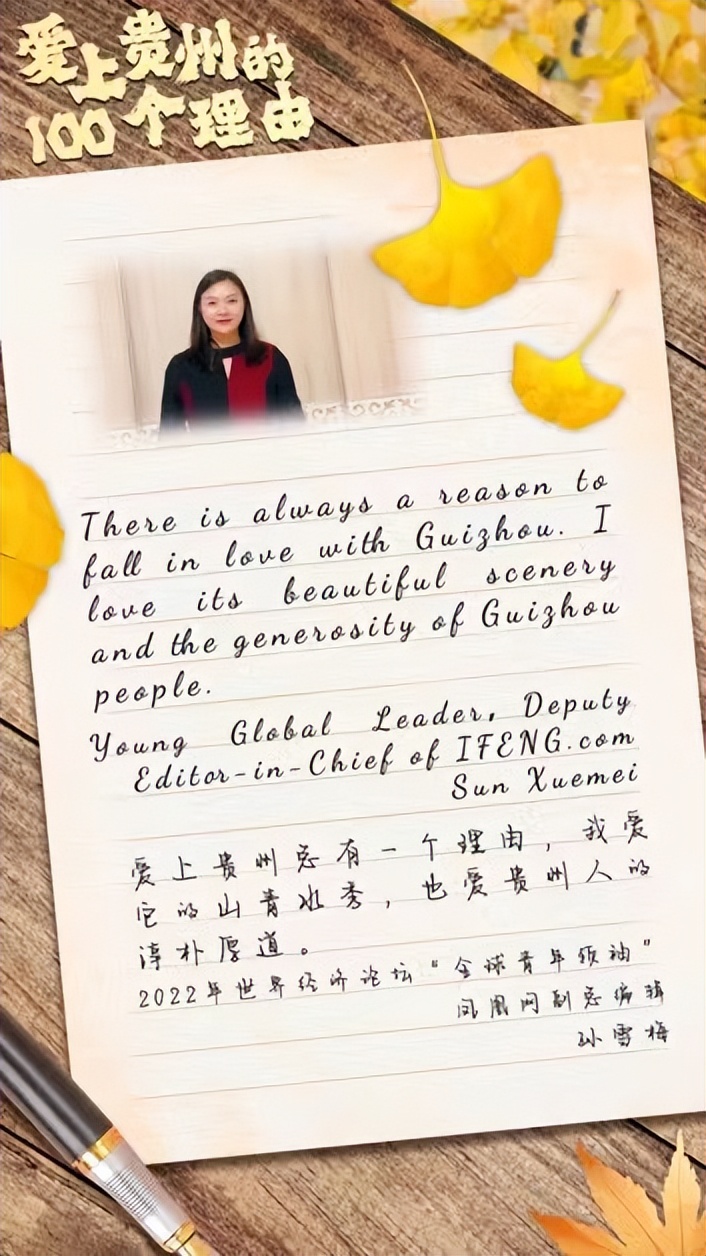 爱上贵州的
100个理由
There is always a reason to
fall in love with Guizhou. I
love its beautiful scenery
and the generosity of Guizhou
people.
Young Global Leader, Deputy
Editor-in-Chief of IFENG.com
Sun Xuemei
爱上贵州总有一个理由，我爱
它的山青水秀，也爱贵州人的
淳朴厚道。
2022年世界经济论坛“全球青年领袖”
凤凰网副总编辑
孙雪梅